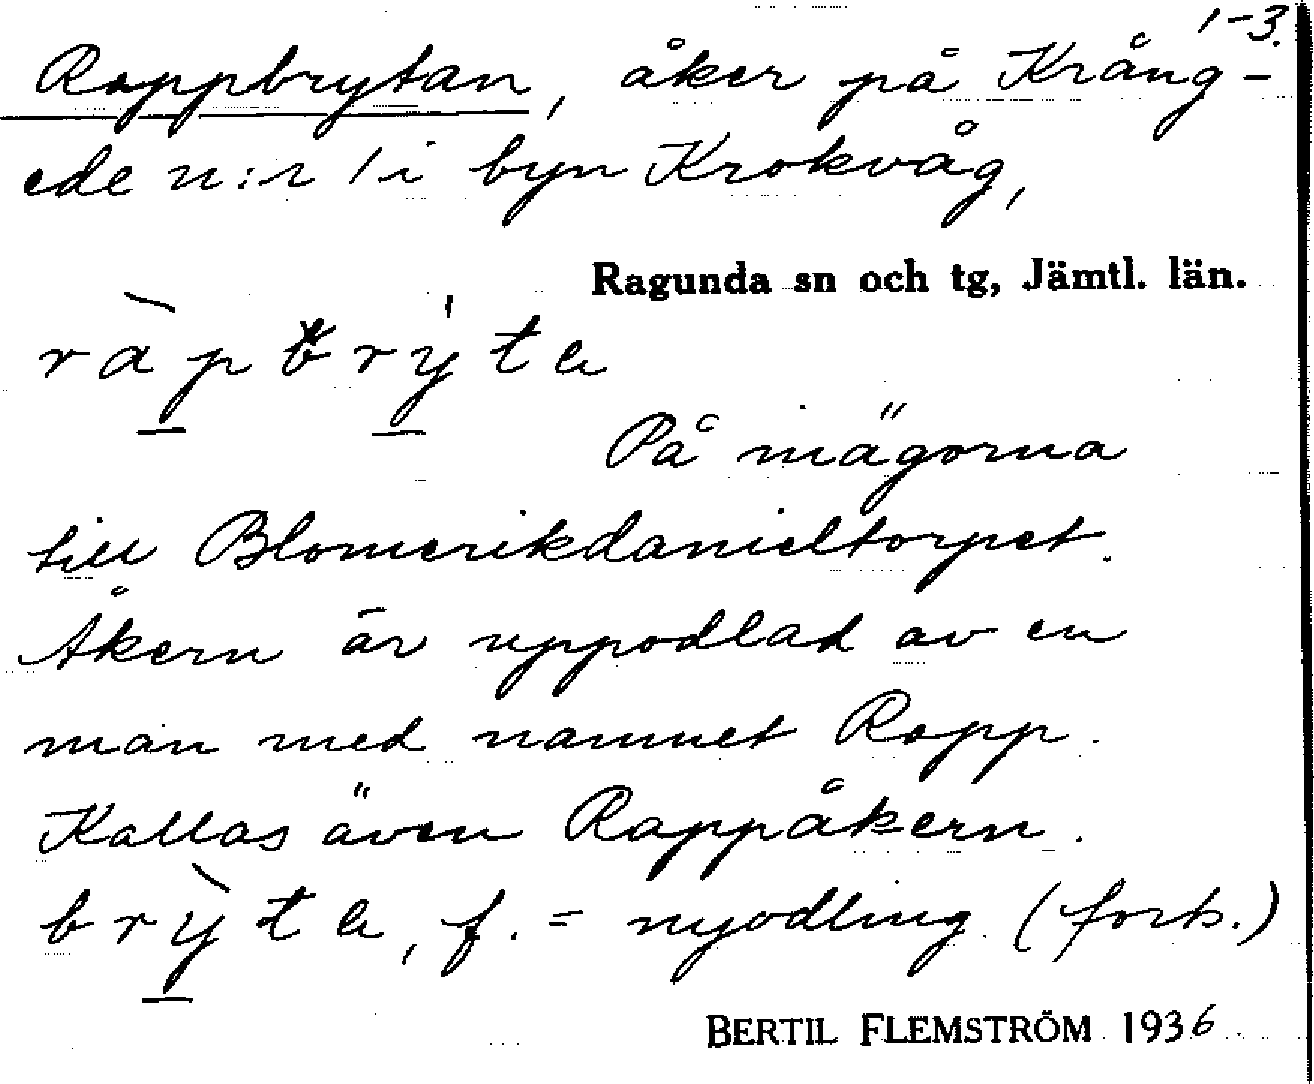 1-3.
Rappbrytan, åker på Krång-
ede n:r 1 i byn Krokvåg,
Ragunda sn och tg, Jämtl. län.
På mägorna
till Blomerikdanieltorpet.
Åkern är uppodlad av en
man med namnet Rapp.
Kallas även Rappåkern.
f. = nyodling (fork.)
BERTIL FLEMSTRÖM 1936